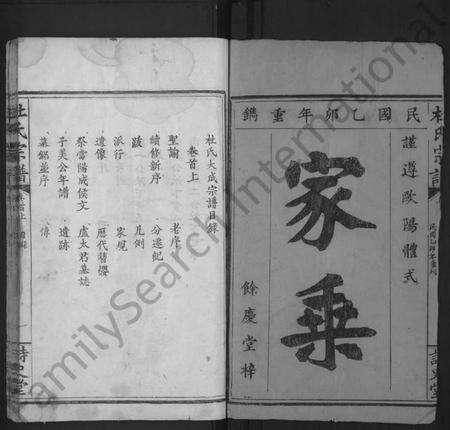 杜氏宗譜
民國乙卯年重鐫
謹遵歐陽體式
家乘
餘慶堂梓
詩史堂
杜氏大成宗譜目錄
卷首上
聖諭 老序
續修新序 分遷紀
跋 凡例
派行 家規
遺像 歷代簪纓
祭當陽成侯文 盧太君墓誌
子美公年譜 遺蹟
墓銘並序 傳
杜氏宗譜
詩史堂
FamilySearch International